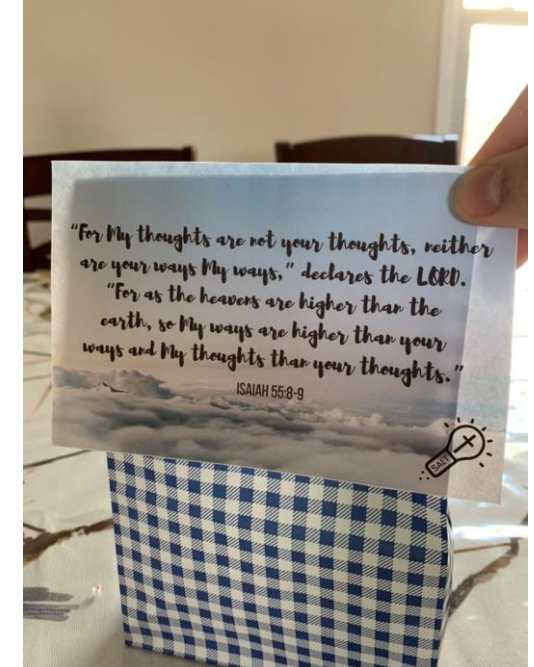 "For My thoughts are not your thoughts, neither
are your ways My ways," declares the LORD.
"For as the heavens are higher than the
earth, so My ways are higher than your
ways and My thoughts than your thoughts."
ISAIAH 55:8-9
SALT